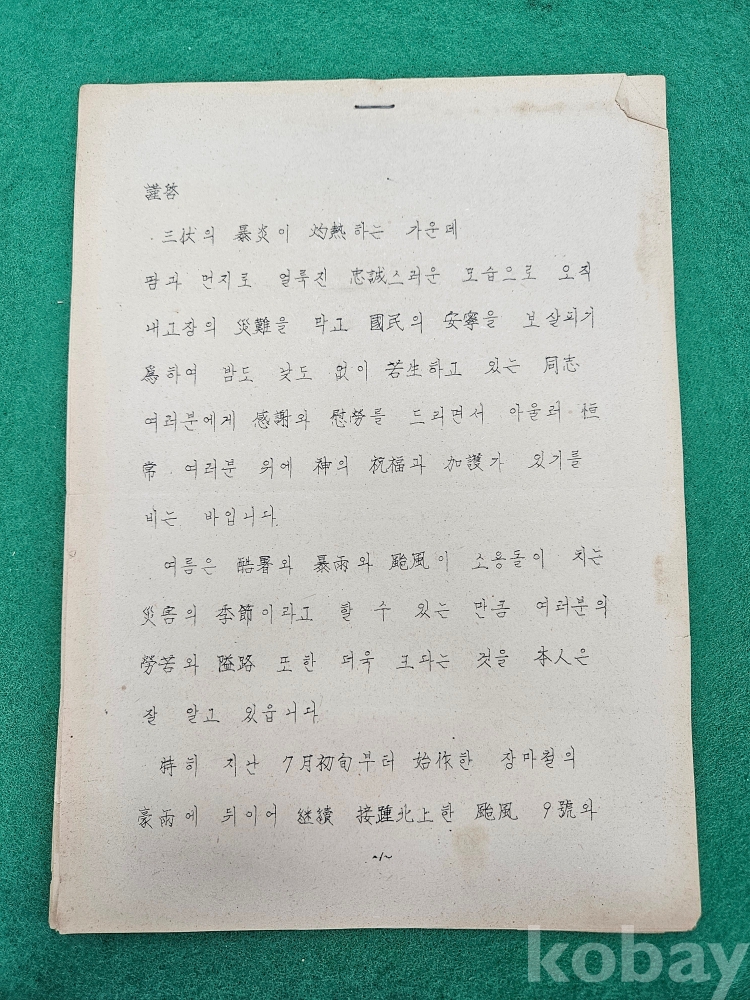 謹啓
三伏의 暴炎이 灼熱하는 가운데
땀과 먼지로 얼룩진 忠誠스러운 모습으로 오직
내고장의 災難을 막고 國民의 安寧을 보살피기
爲하여 밤도 낮도 없이 苦生하고 있는 同志
여러분에게 感謝와 慰勞를 드리면서 아울러 恒
常 여러분 위에 神의 祝福과 加護가 있기를
비는 바입니다.
여름은 酷暑와 暴雨와 颱風이 소용돌이 치는
災害의 季節이라고 할 수 있는 만큼 여러분의
勞苦와 隘路 또한 더욱 크다는 것을 本人은
잘 알고 있읍니다
特히 지난 7月初旬부터 始作한 장마철의
豪雨에 뒤이어 継續 接踵北上한 颱風 9號와
~1~
kobay